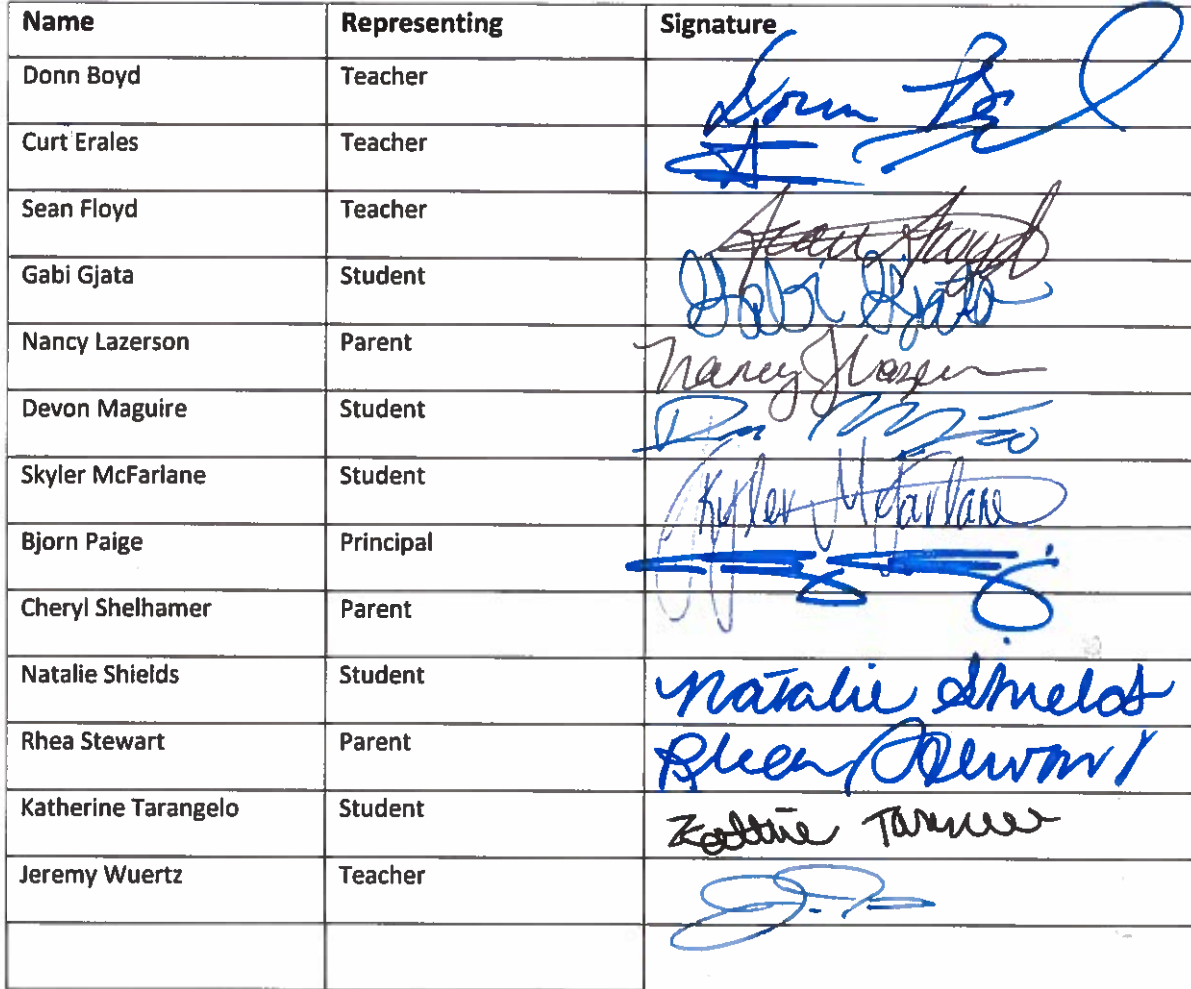 Name Representing Signature
Donn Boyd Teacher Donn
Curt Erales Teacher
Sean Floyd Teacher Sean Floyd
Gabi Gjata Student Gabi Gjata
Nancy Lazerson Parent Nancy J Lazer
Devon Maguire Student
Skyler McFarlane Student Skyler McFarlane
Bjorn Paige Principal
Cheryl Shelhamer Parent
Natalie Shields Student Natalie Shields
Rhea Stewart Parent Rhea Stewart
Katherine Tarangelo Student
Jeremy Wuertz Teacher